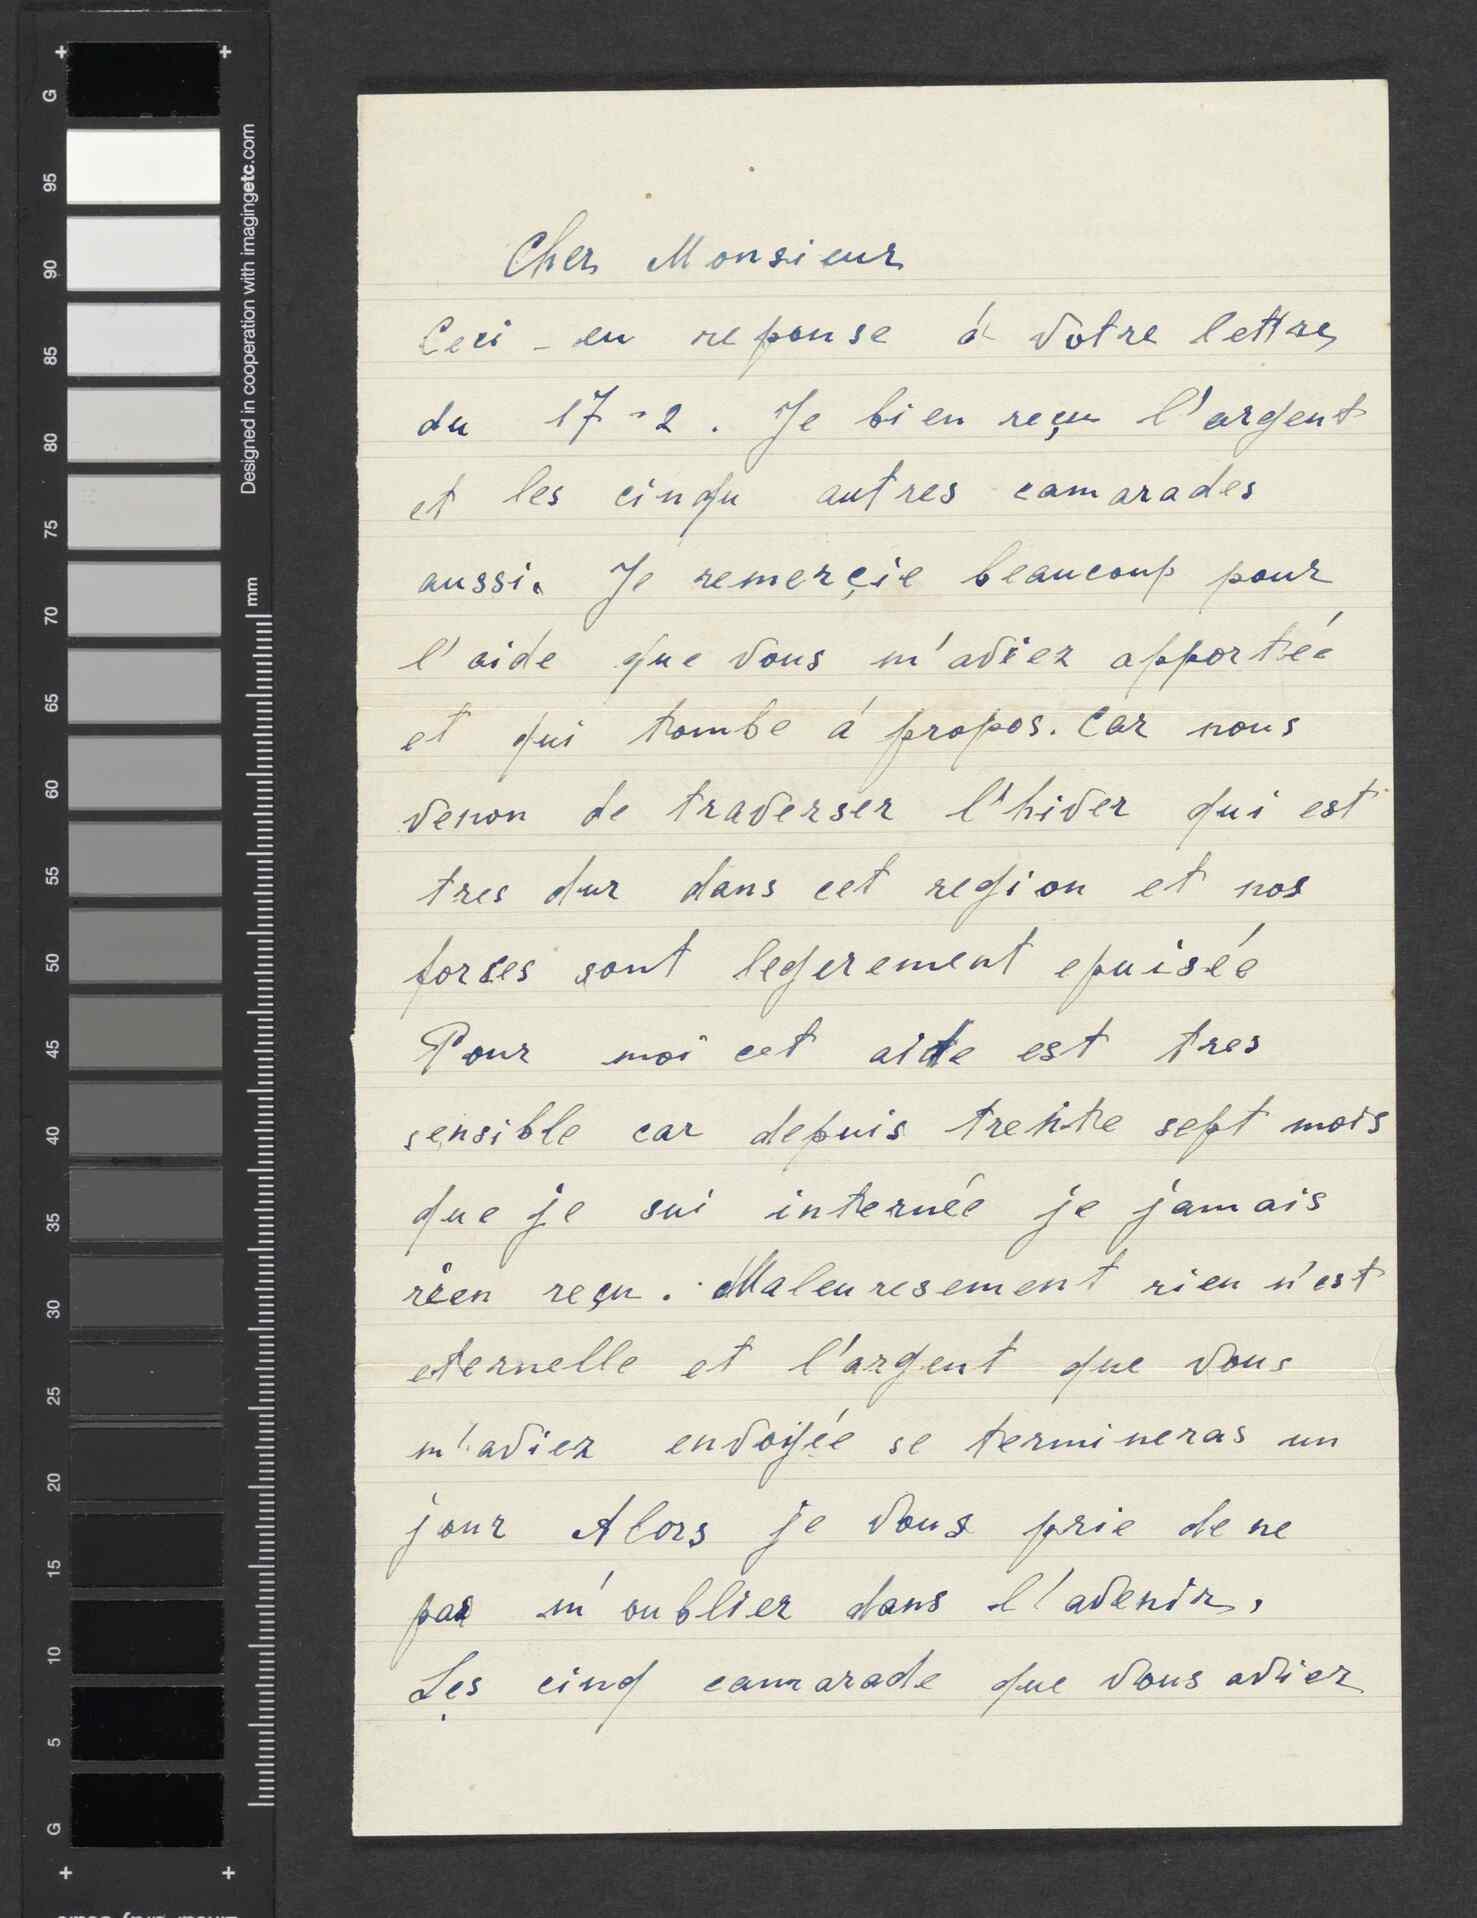 Cher Monsieur
Ceci - en reponse á votre lettre
du 17-2. Je bien reçu l'argent
et les cinqu autres camarades
aussi. Je remerçie beaucoup pour
l'aide que vous m'aviez apportée
et qui tombe á propos. Car nous
venon de traverser l'hiver qui est
tres dur dans cet region et nos
forses sont legerement epuisée
Pour moi cet aide est tres
sensible car depuis trente sept mois
que je sui internée je jamais
rien reçu. Maleuresement rien n'est
eternelle et l'argent que vous
m'aviez envoyée se termineras un
jour Alors je vous prie de ne
pas m'oublier dans l'avenir.
Les cinq camarade que vous aviez
G
95
90
85
80
75
70
65
60
55
50
45
40
35
30
25
20
15
10
5
G
Designed in cooperation with imagingetc.com
mm